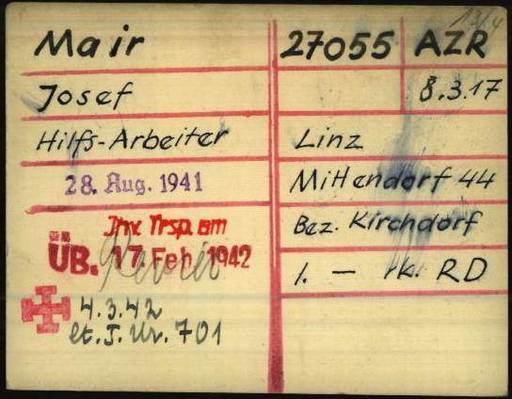 Mair 27055 AZR
Josef 8.3.17
Hilfs-Arbeiter Linz
28. Aug. 1941 Mittendorf 44
Inv. Trsp. am Bez. Kirchdorf
ÜB. 17. Feb. 1942 Revier
1. — rk. RD
4.3.42
lt. T. Ur. 701